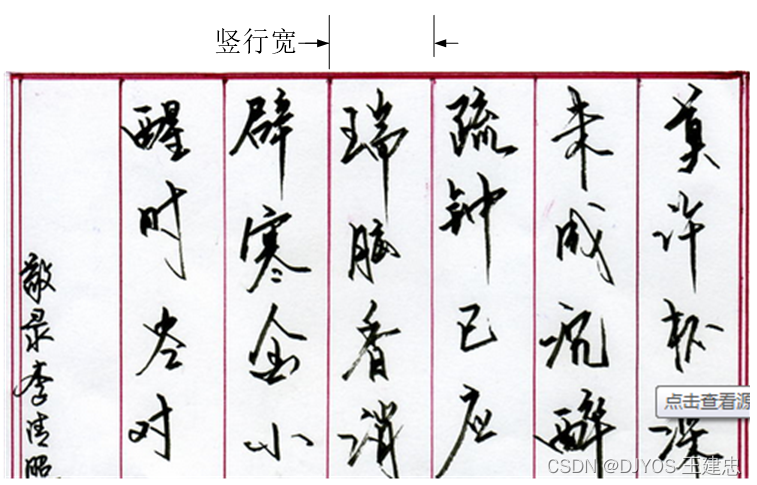 竖行宽
莫许杯深
未成沉醉
疏钟已应
瑞脑香消
辟寒金小
醒时空对
敬录李清照
点击查看源
CSDN @DJYOS-王建忠